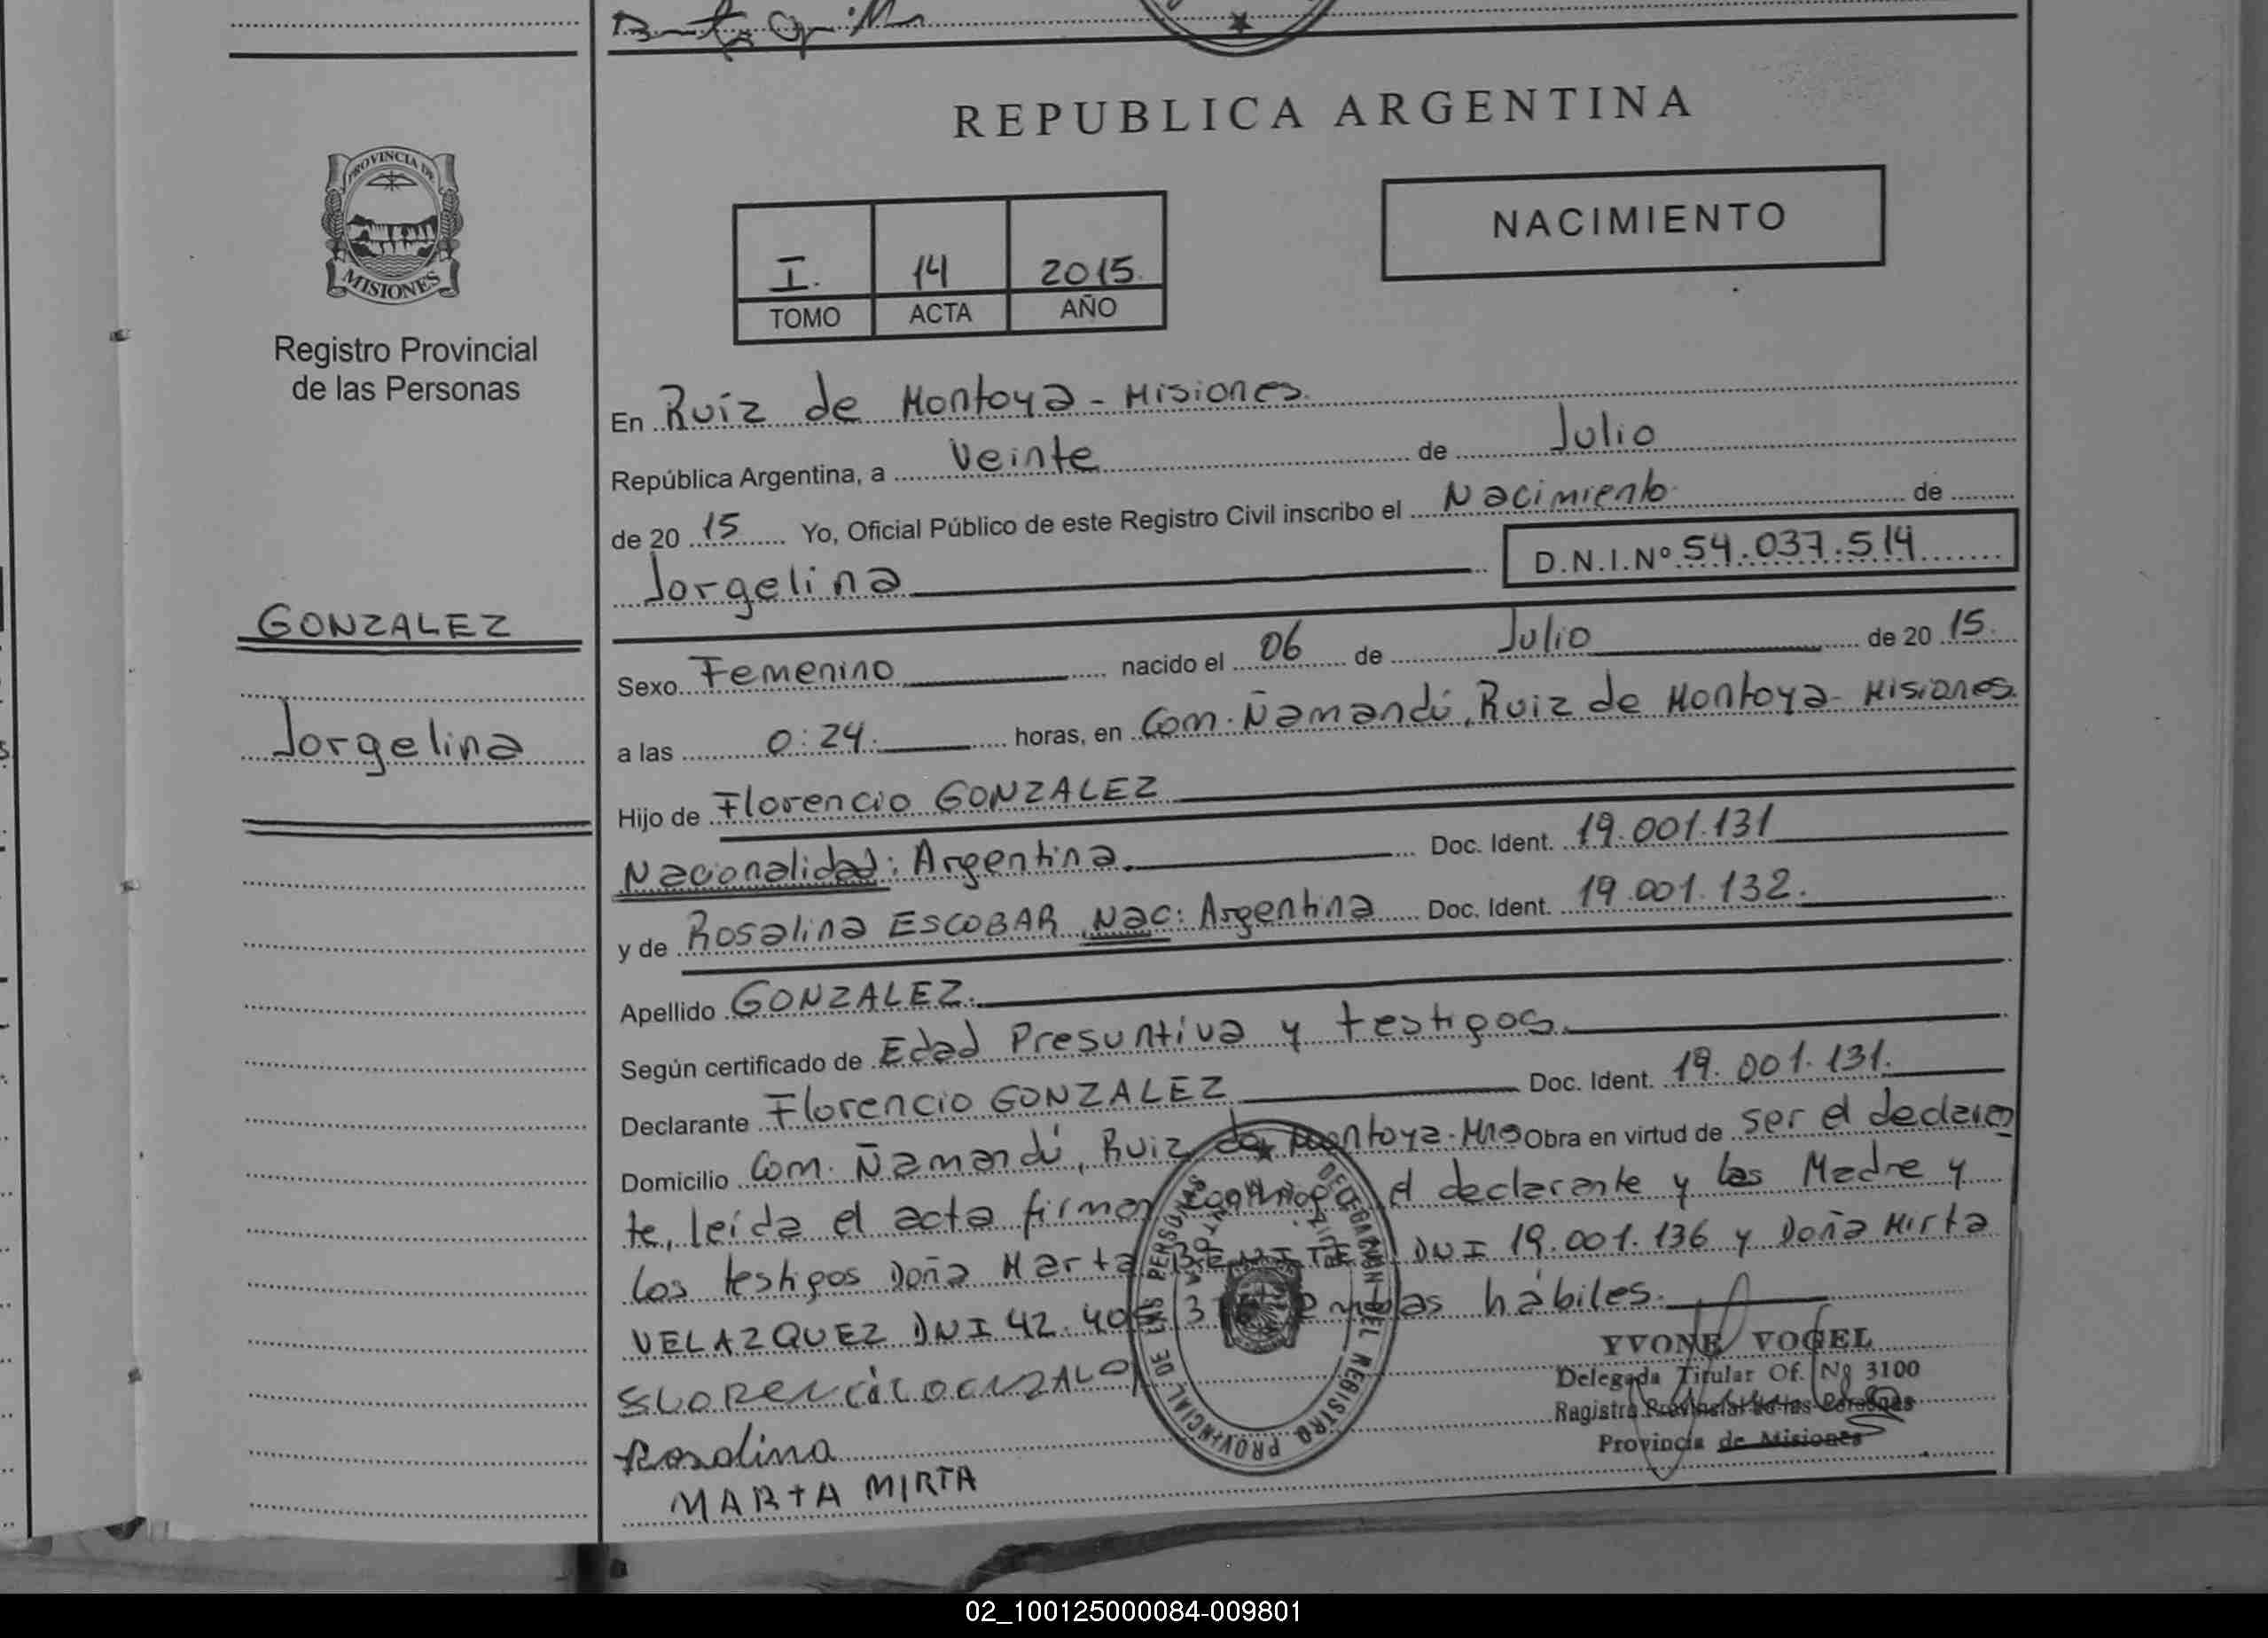 REPUBLICA ARGENTINA
PROVINCIA DE
MISIONES
Registro Provincial
de las Personas
GONZALEZ
Jorgelina
NACIMIENTO
I. 14 2015
TOMO ACTA AÑO
En Ruíz de Montoya - Misiones.
República Argentina, a veinte de Julio
de 20 15 Yo, Oficial Público de este Registro Civil inscribo el Nacimiento de
Jorgelina D.N.I.Nº 54.037.514
Sexo Femenino nacido el 06 de Julio de 20 15.
a las 0:24. horas, en Com. Ñamandú, Ruiz de Montoya - Misiones.
Hijo de Florencio GONZALEZ
Nacionalidad: Argentina. Doc. Ident. 19.001.131
y de Rosalina ESCOBAR, Nac: Argentina Doc. Ident. 19.001.132.
Apellido GONZALEZ.
Según certificado de Edad Presuntiva y testigos.
Declarante Florencio GONZALEZ Doc. Ident. 19.001.131.
Domicilio Com. Ñamandú, Ruiz de Montoya - Mnes Obra en virtud de ser el declaran
te, leída el acta firman conmigo el declarante y las Madre y
los testigos Doña Marta BENITEZ DNI 19.001.136 y Doña Mirta
VELAZQUEZ DNI 42.40 ambas hábiles.
Rosalina
MARTA MIRTA
DELEGACION DEL REGISTRO PROVINCIAL DE LAS PERSONAS
YVONE VOGEL
Delegada Titular Of. Nº 3100
Registro Provincial de las Personas
Provincia de Misiones
02_100125000084-009801